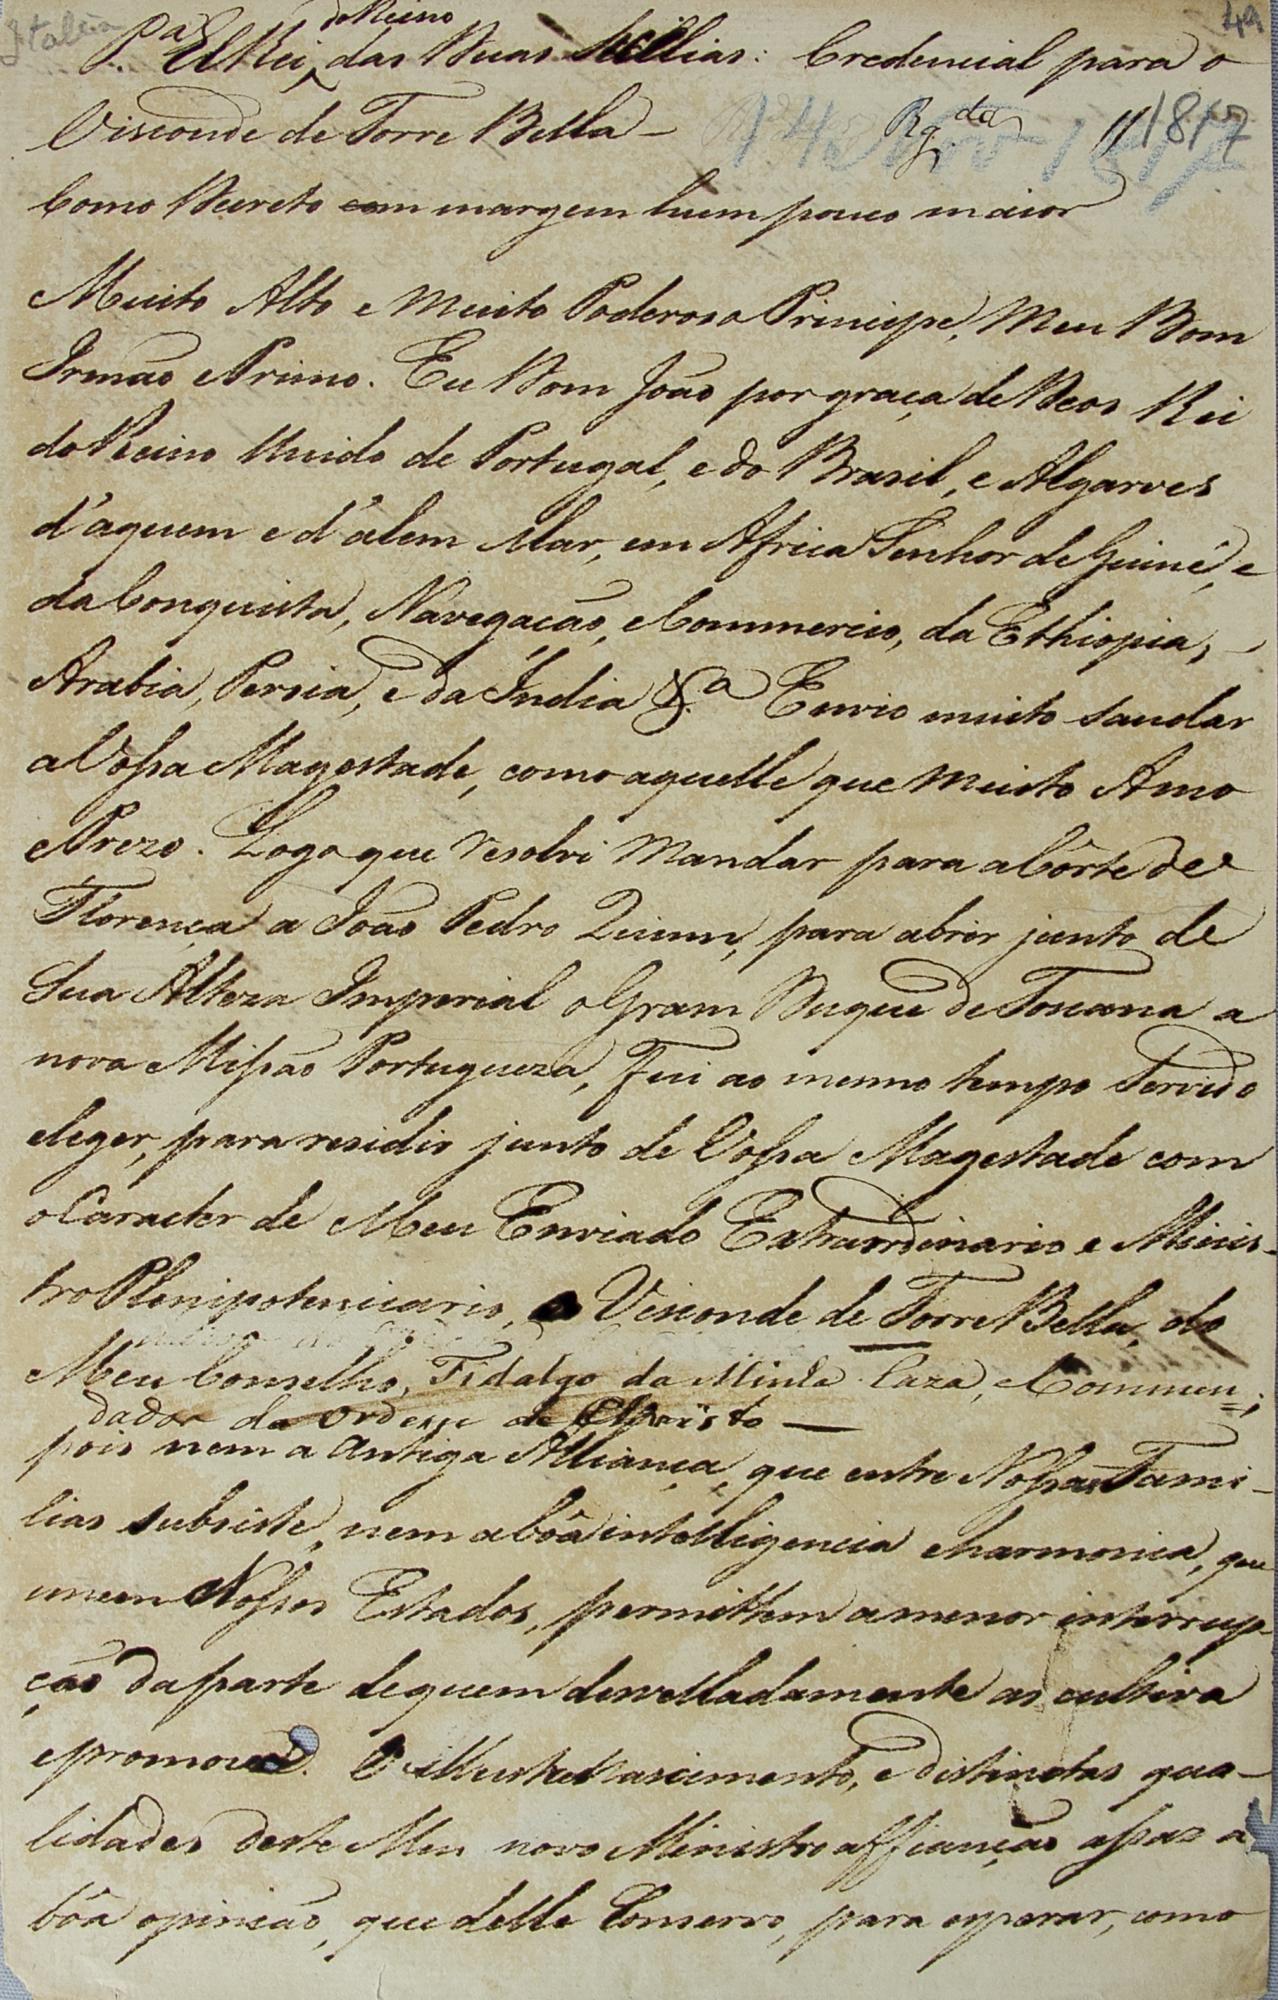 Italia 49
do Reino
P.ª ElRei das Duas Sicilias: Credencial para o
Visconde de Torre Bella — Rg.da 1817
14 Nov 1817
Como Decreto com margem hum pouco maior
Muito Alto e Muito Poderoso Principe, Meu Bom
Irmão e Primo. Eu Dom João por graça de Deos Rei
do Reino Unido de Portugal, e do Brasil, e Algarves
d'aquem e d'alem Mar, em Africa Senhor de Guiné, e
da Conquista, Navegação, e Commercio, da Ethiopia, —
Arabia, Persia, e da India &.ª Envio muito saudar
a Vossa Magestade, como aquelle que Muito Amo
e Prezo. Logo que resolvi Mandar para a Côrte de
Florença a João Pedro Quinn, para abrir junto de
Sua Alteza Imperial o Gram Duque de Toscana a
nova Missão Portugueza, Fui ao mesmo tempo Servido
eleger, para residir junto de Vossa Magestade com
o Caracter de Meu Enviado Extraordinario e Minis-
tro Plenipotenciario, o Visconde de Torre Bella, do
Meu Conselho, Fidalgo da Minha Caza, e Commen=
dador da Ordem de Christo —
pois nem a Antiga Alliança, que entre Nossas Fami-
lias subsiste, nem a bôa intelligencia e harmonia, que
unem Nossos Estados, permittem a menor interrup-
ção da parte de quem desvelladamente as cultiva
e promove. O illustre Nascimento, e distinctas qua-
lidades deste Meu novo Ministro affiançao assaz a
bôa opinião, que delle Conservo, para esperar, como